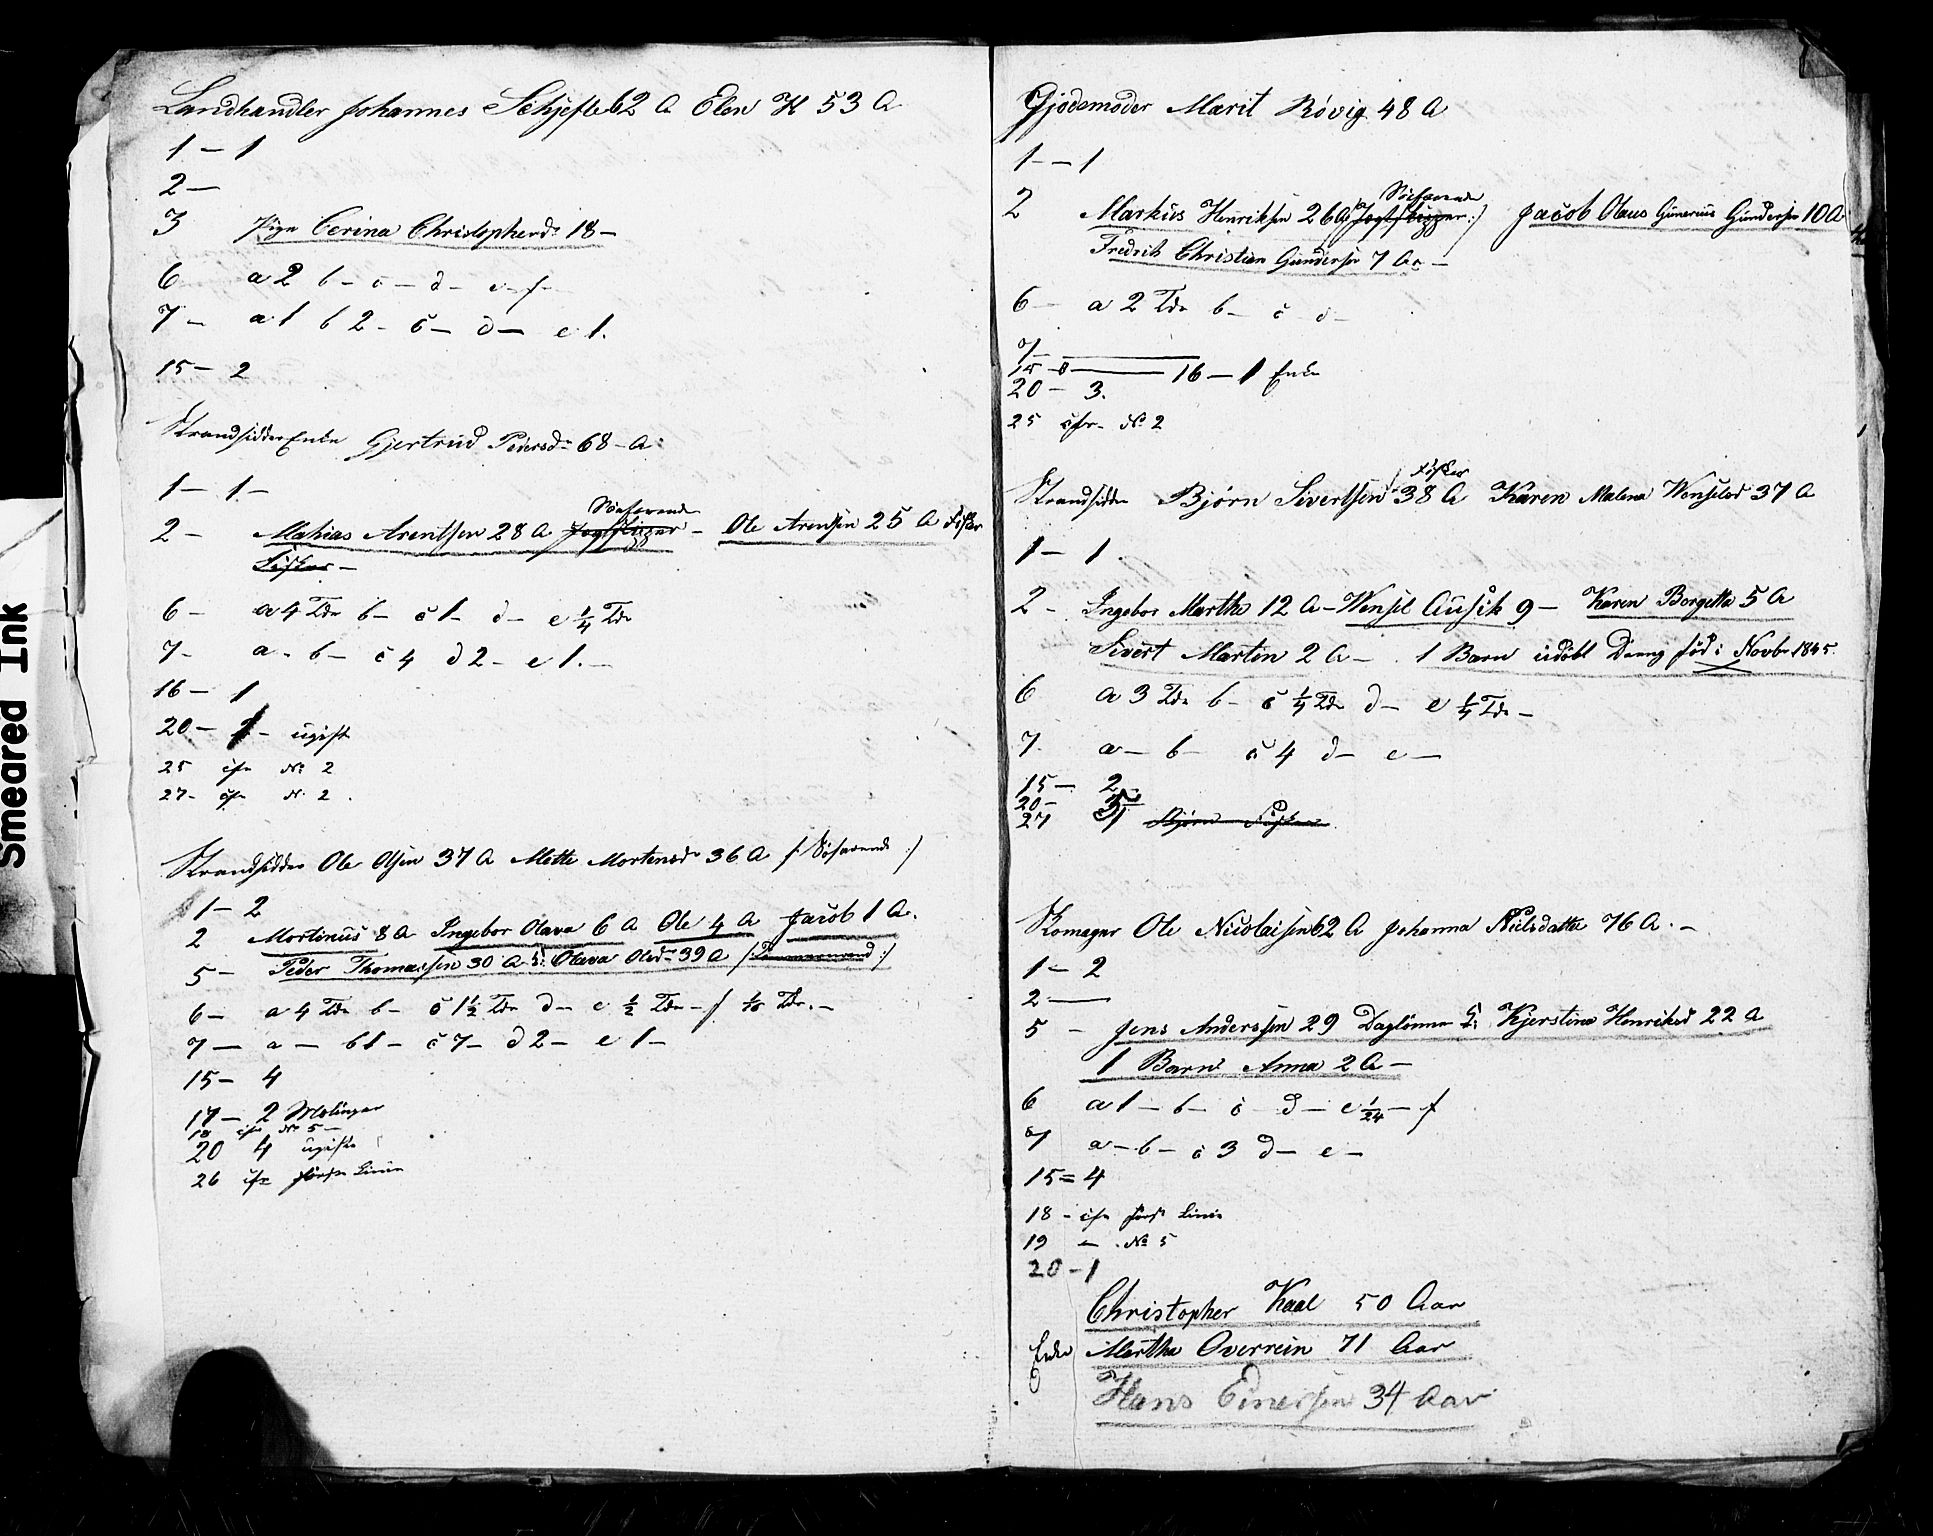 Landhandler Johannes Schjefte 62 A Elen H 53 A
1 – 1
2 –
3 Pige Cerina Christophersd. 18 –
6 a 2 b – c – d – e – f –
7 – a 1 b 2 – c – d – e 1.
15 – 2
Strandsidder Enke Gjertrud Pedersd. 68 – A
1 – 1 –
Söefarende
2 – Mathias Arentsen 28 A – Ole Arensen 25 A Fisker
Fisker –
6 – a 4 Tdr b – c 1 – d – e 1/4 Tdr
7 – a – b – c 4 d 2 – e 1. –
16 – 1
20 – – ugift
25 cfr No 2
27 – cfr No 2.
Strandsidder Ole Olsen 37 A Mette Mortensd 36 A /: Söfarende :/
1 – 2
2 Mortinus 8 A Ingebor Olava 6 A Ole 4 A Jacob 1 A.
5 – Peder Thomassen 30 A Olava Olsd 39 A
6 – a 4 Tdr b – c 1 1/2 Tdr d – e 1/2 Tdr – f 1/16 Tdr. –
7 – a – b 1 – c 7 – d 2 – e 1 –
15 – 4
17 – 2
18 cfr No 5 –
20 4 ugifte
26 cfr förste Linie
Gjødemoder Marit Røvig 48 A
1 – – 1
Söefarende
2 Markus Henriksen 26 A Jacob Olaus Gunerius Gundersen 10 A
Fredrik Christian Gundersen 7 A –
6 – a 2 Tdr b – c d –
7 –
15 – 16 – 1 Enke
20 – 3.
25 cfr – No 2
Fisker
Strandsidder Bjørn Sivertsen 38 A Karen Malena Wenselsd 37 A
1 – 1.
2 – Ingebor Martha 12 A – Wensel 9 – Karen Borgetta 5 A
Sivert Martin 2 A – . 1 Barn udöbt Dreng född i Novbr 1845
6 a 3 Tdr b – c 1/4 Tdr d – e 1/4 Tdr –
7 – a – b – c 4 d – e –
15 – 2
20 –
27 Bjørn Fisker
Komager Ole Nicolaisen 62 A Johanna Nielsdatter 76 A. –
1 – 2
2 –
5 – Jens Anderssen 29 Daglönner Kjerstina Henriksd 22 A
1 Barn Anna 2 A –
6 a 1 – b – c – d – e 1/24 – f
7 a – b – c 3 d – e –
15 = 4
18 – cfr förste Linie
19 – No 5
20 – 1
Christopher Kaal 50 Aar
Enke Martha Overrein 71 Aar
Hans Einersen 34 Aar
Smeared Ink